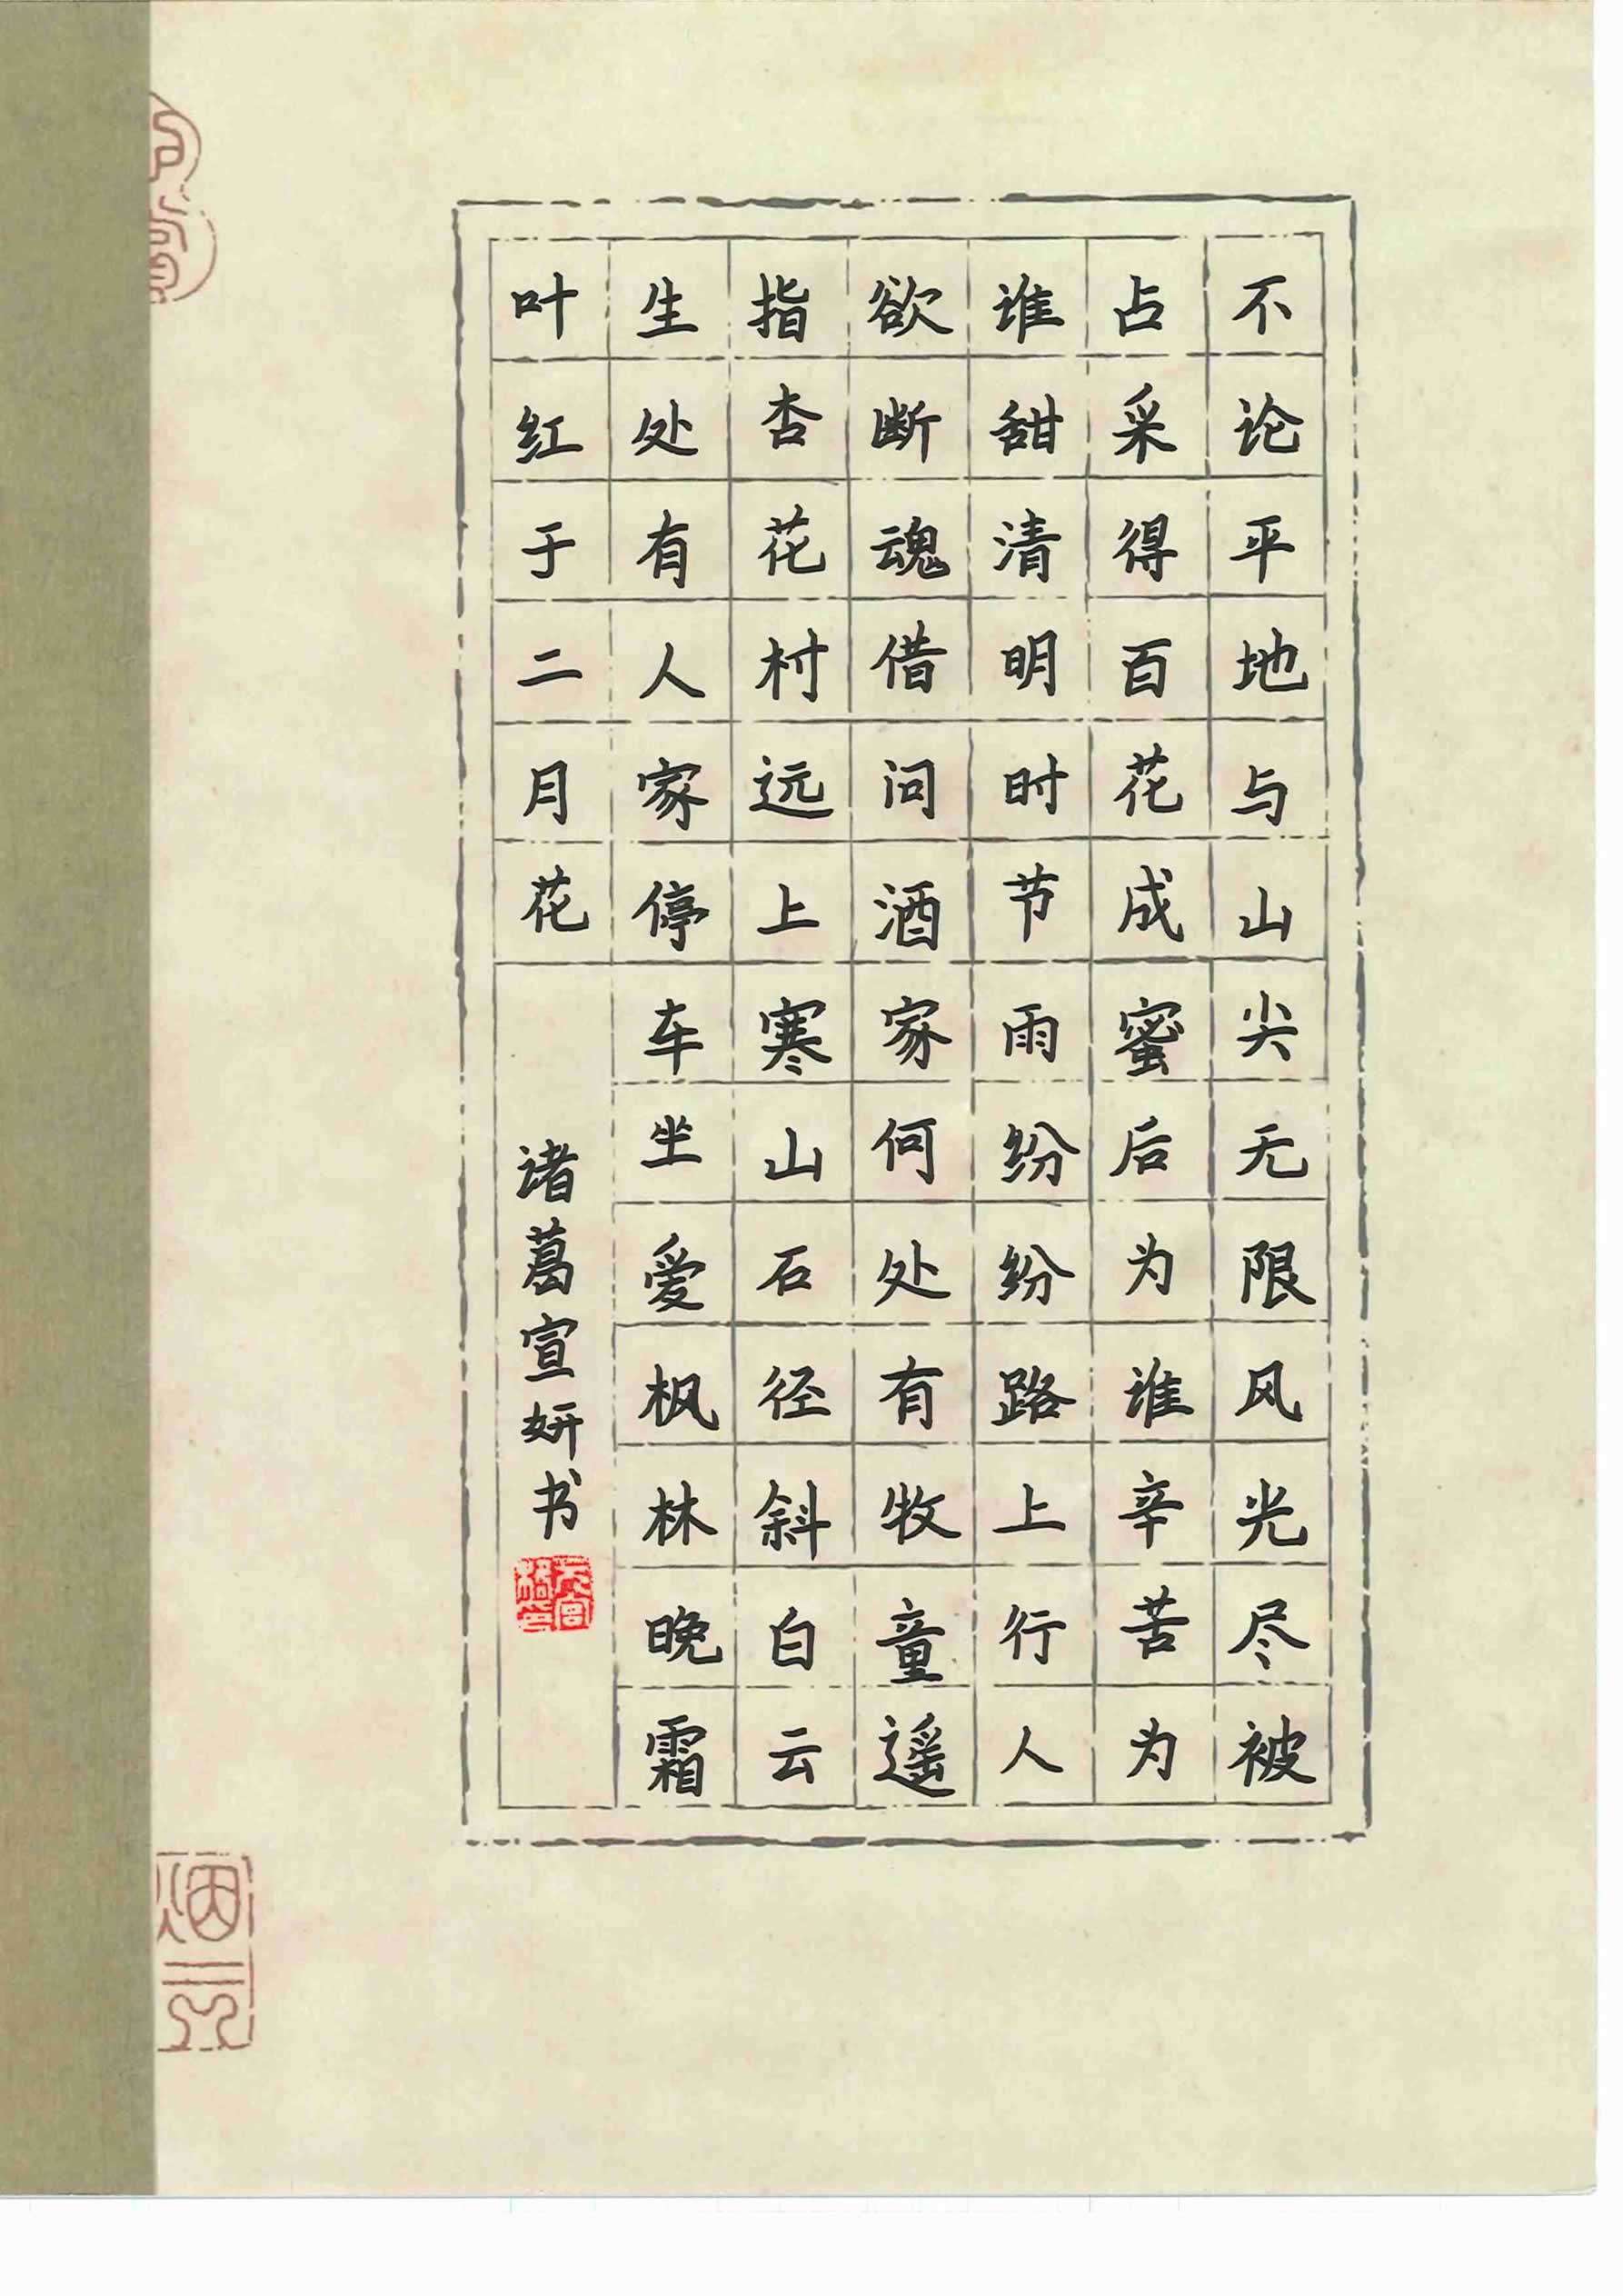 不论平地与山尖无限风光尽被
占采得百花成蜜后为谁辛苦为
谁甜清明时节雨纷纷路上行人
欲断魂借问酒家何处有牧童遥
指杏花村远上寒山石径斜白云
生处有人家停车坐爱枫林晚霜
叶红于二月花
诸葛宣妍书